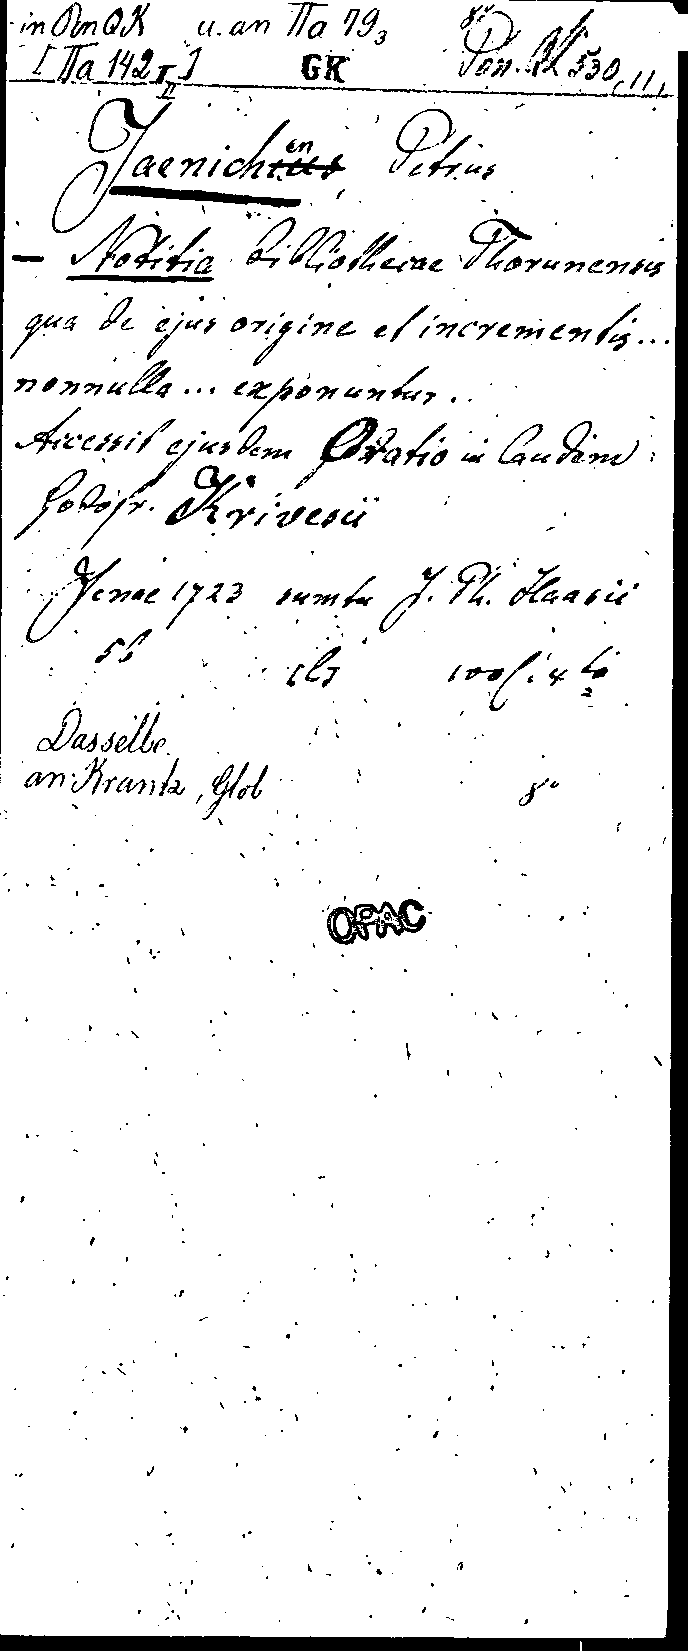 in Rn QK u. an IIa 79₃ 8°
[IIa 142 I II] GK Pon. 530, 11,
Jaenichen, Petrus
— Notitia bibliothecae Thorunensis
qua de ejus origine et incrementis...
nonnulla... exponuntur..
Accessit ejusdem Oratio in laudem
Godofr. Krivesii
Jenae 1723 sumtu J. Ph. Haasii
Dasselbe.
an: Krantz, Glob 8°
OPAC